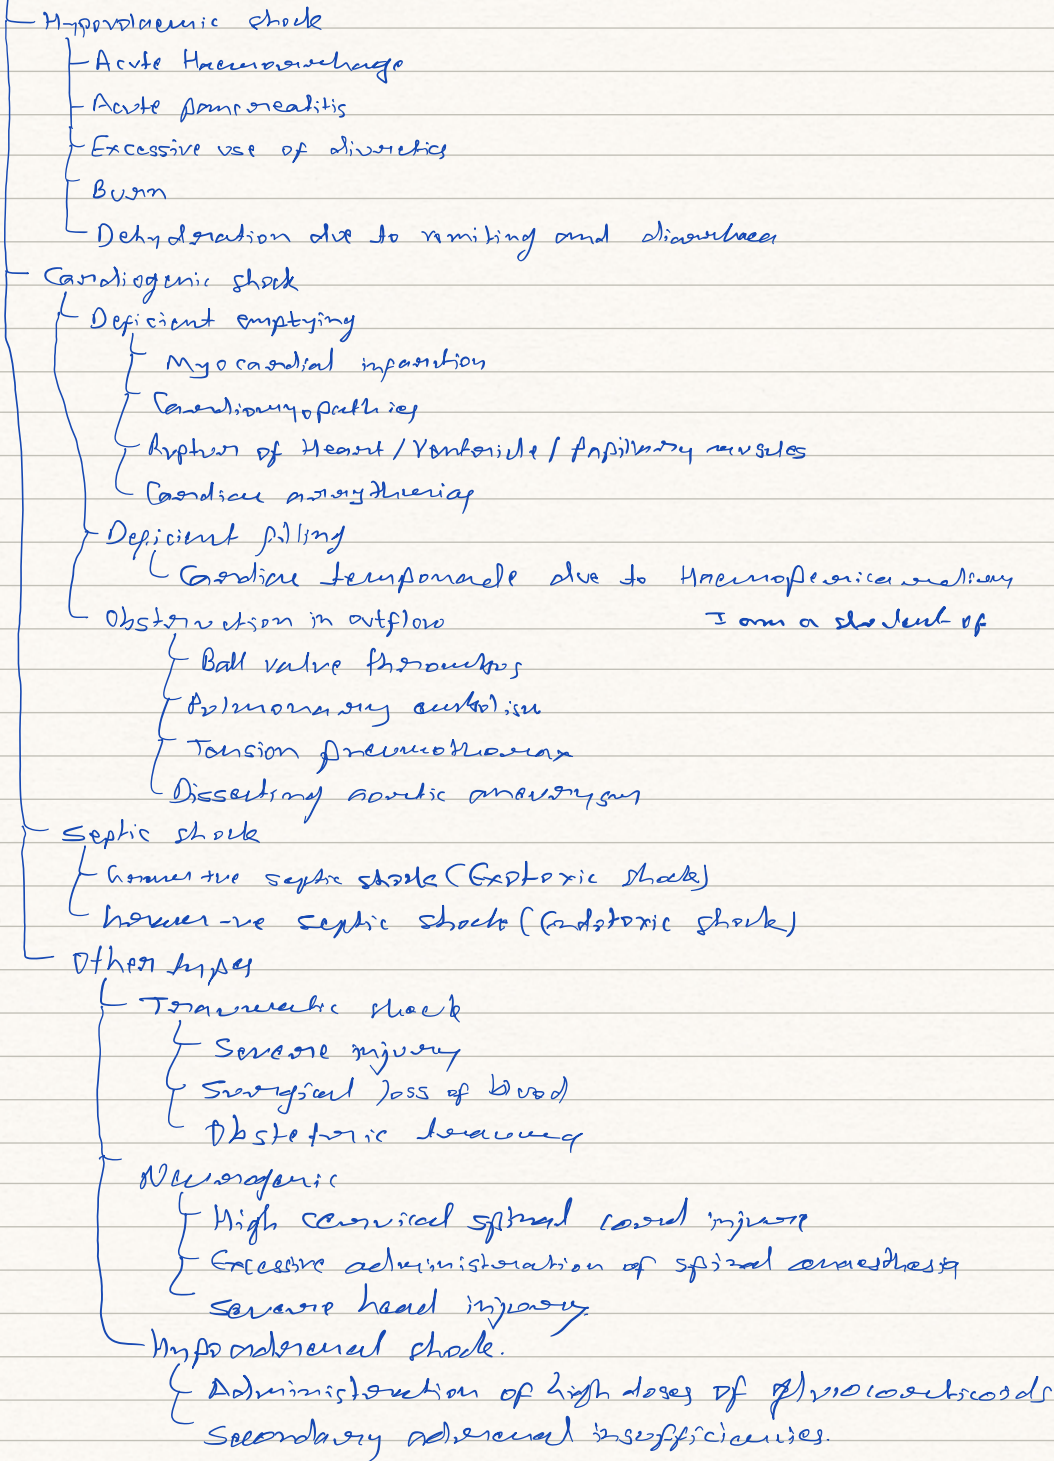 Hypovolaemic shock
Acute Haemorrhage
Acute pancreatitis
Excessive use of diuretics
Burn
Dehydration due to vomiting and diarrhaea
Cardiogenic shock
Deficient emptying
Myocardial infarction
Cardiomyopathies
Ruptur of Heart/Ventricle/papillary muscles
Cardiac arrythmias
Deficient filling
Cardiac temponade due to Haemopericardium
Obstruction in outflow
I am a student of
Ball valve thrombus
Pulmonary embolism
Tension pneumothorax
Dissecting aortic aneurysm
Septic shock
Gram +ve septic shock (Exotoxic shock)
Gram -ve septic shock (Endotoxic shock)
Other types
Traumatic shock
Severe injury
Surgical loss of blood
Obstetric trauma
Neurogenic
High cervical spinal cord injure
Excessive administration of spinal anaesthesia
Severe head injury
Hypoadrenal shock.
Administration of high doses of glucocorticoids
Secondary adrenal insufficiencies.